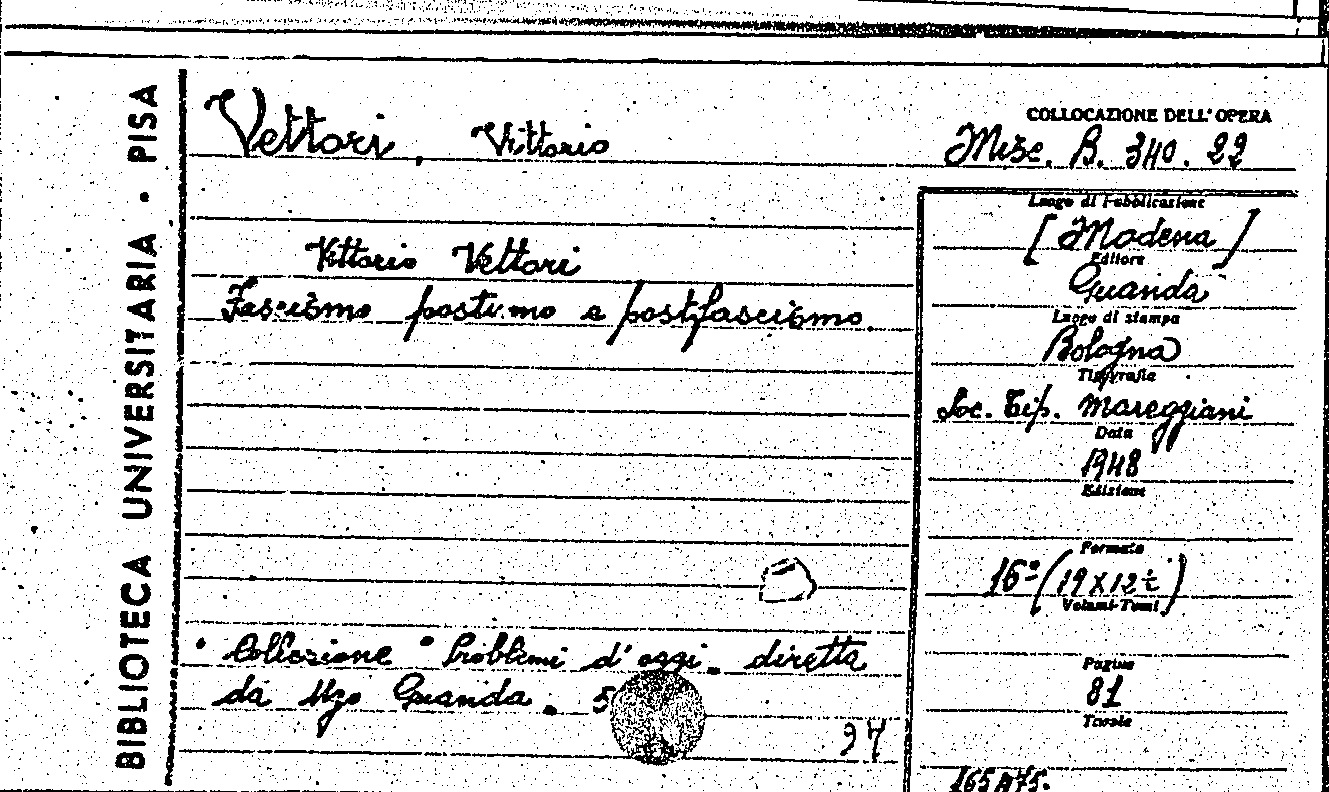 BIBLIOTECA UNIVERSITARIA · PISA
Vettori, Vittorio
COLLOCAZIONE DELL'OPERA
Misc. B. 340. 22
Vittorio Vettori
Fascismo postumo e postfascismo.
Luogo di Pubblicazione
[Modena]
Editore
Guanda
Luogo di stampa
Bologna
Tipografia
Soc. Tip. Mareggiani
Data
1948
Edizione
Formato
16° (19 x 12 ½)
Volumi-Tomi
Pagine
81
Tavole
Collezione "Problemi d'oggi. diretta
da Ugo Guanda. 5
97